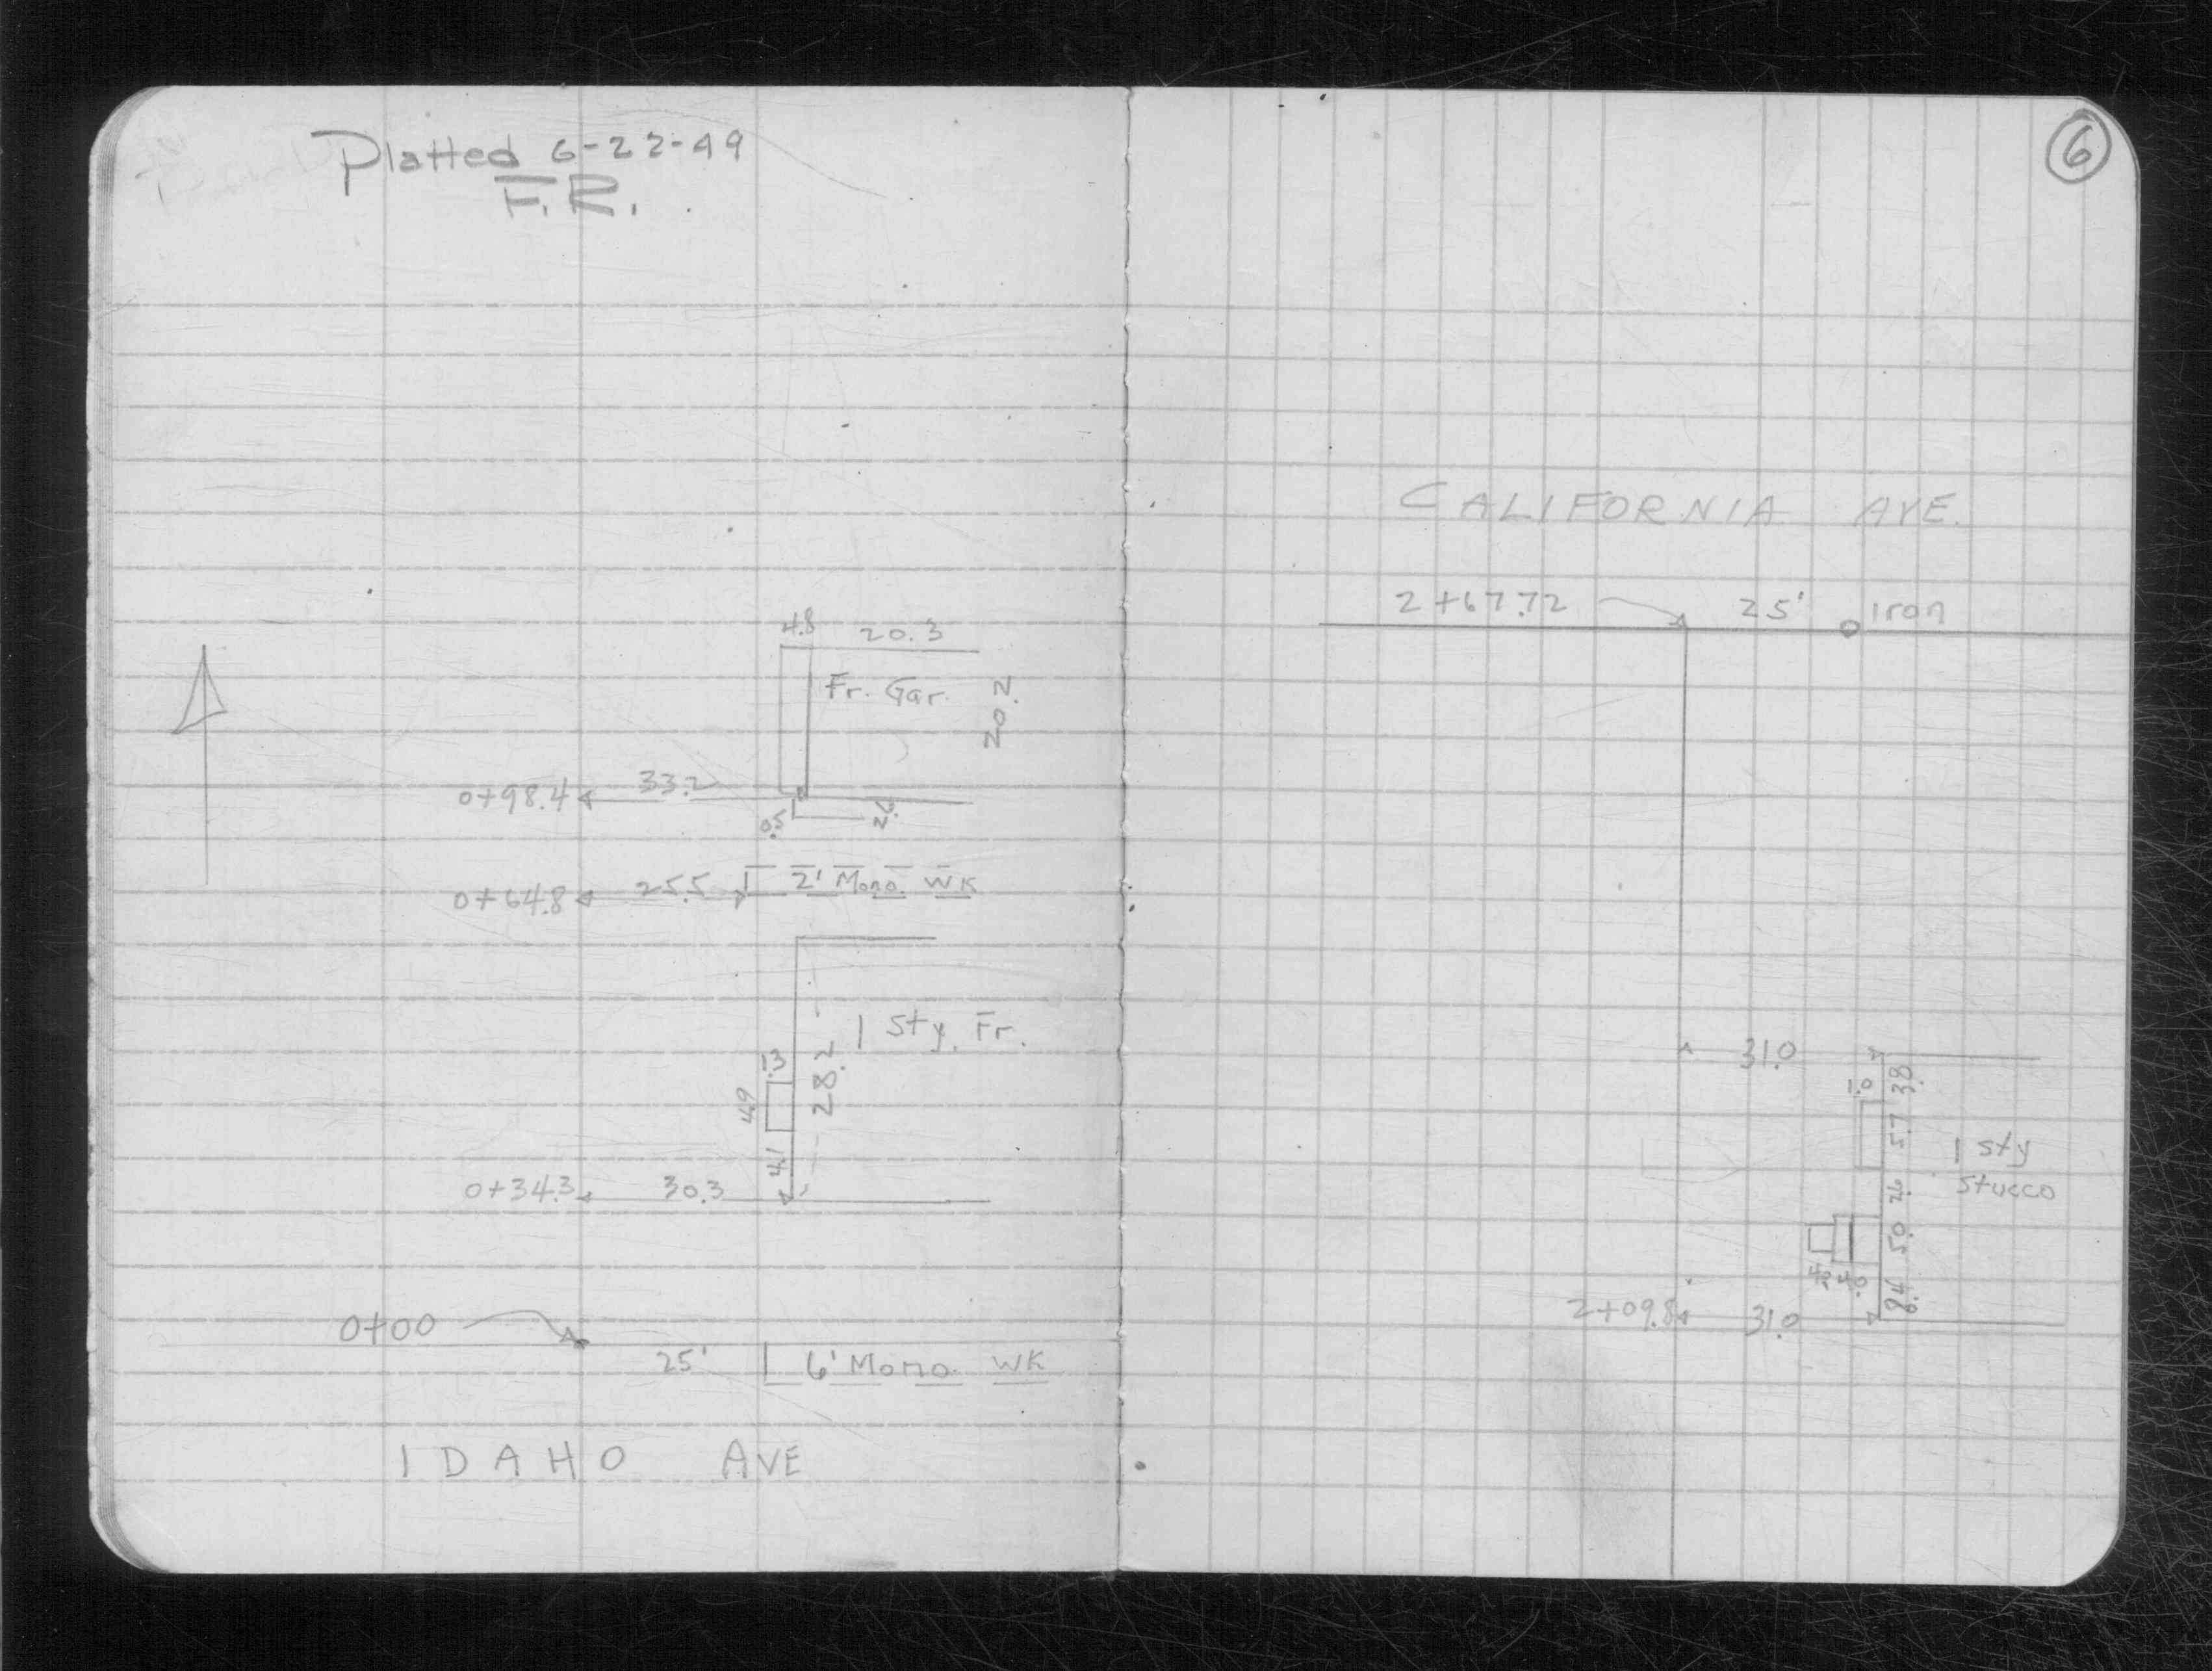 Platted 6-22-49
F.R.
4.8 20.3
Fr. Gar.
20.2
0+98.4 33.2
0.5
0+64.8 25.5 2' Mono. WK
1 Sty. Fr.
1.3
28.2
4.9
4.1
0+34.3 30.3
0+00
25' 6' Mono. WK
IDAHO AVE
6
CALIFORNIA AVE.
2+67.72 25' Iron
31.0
1.0 3.8
5.7
1 sty
stucco
2.6
5.0
4.0
8.4
2+09.8 31.0